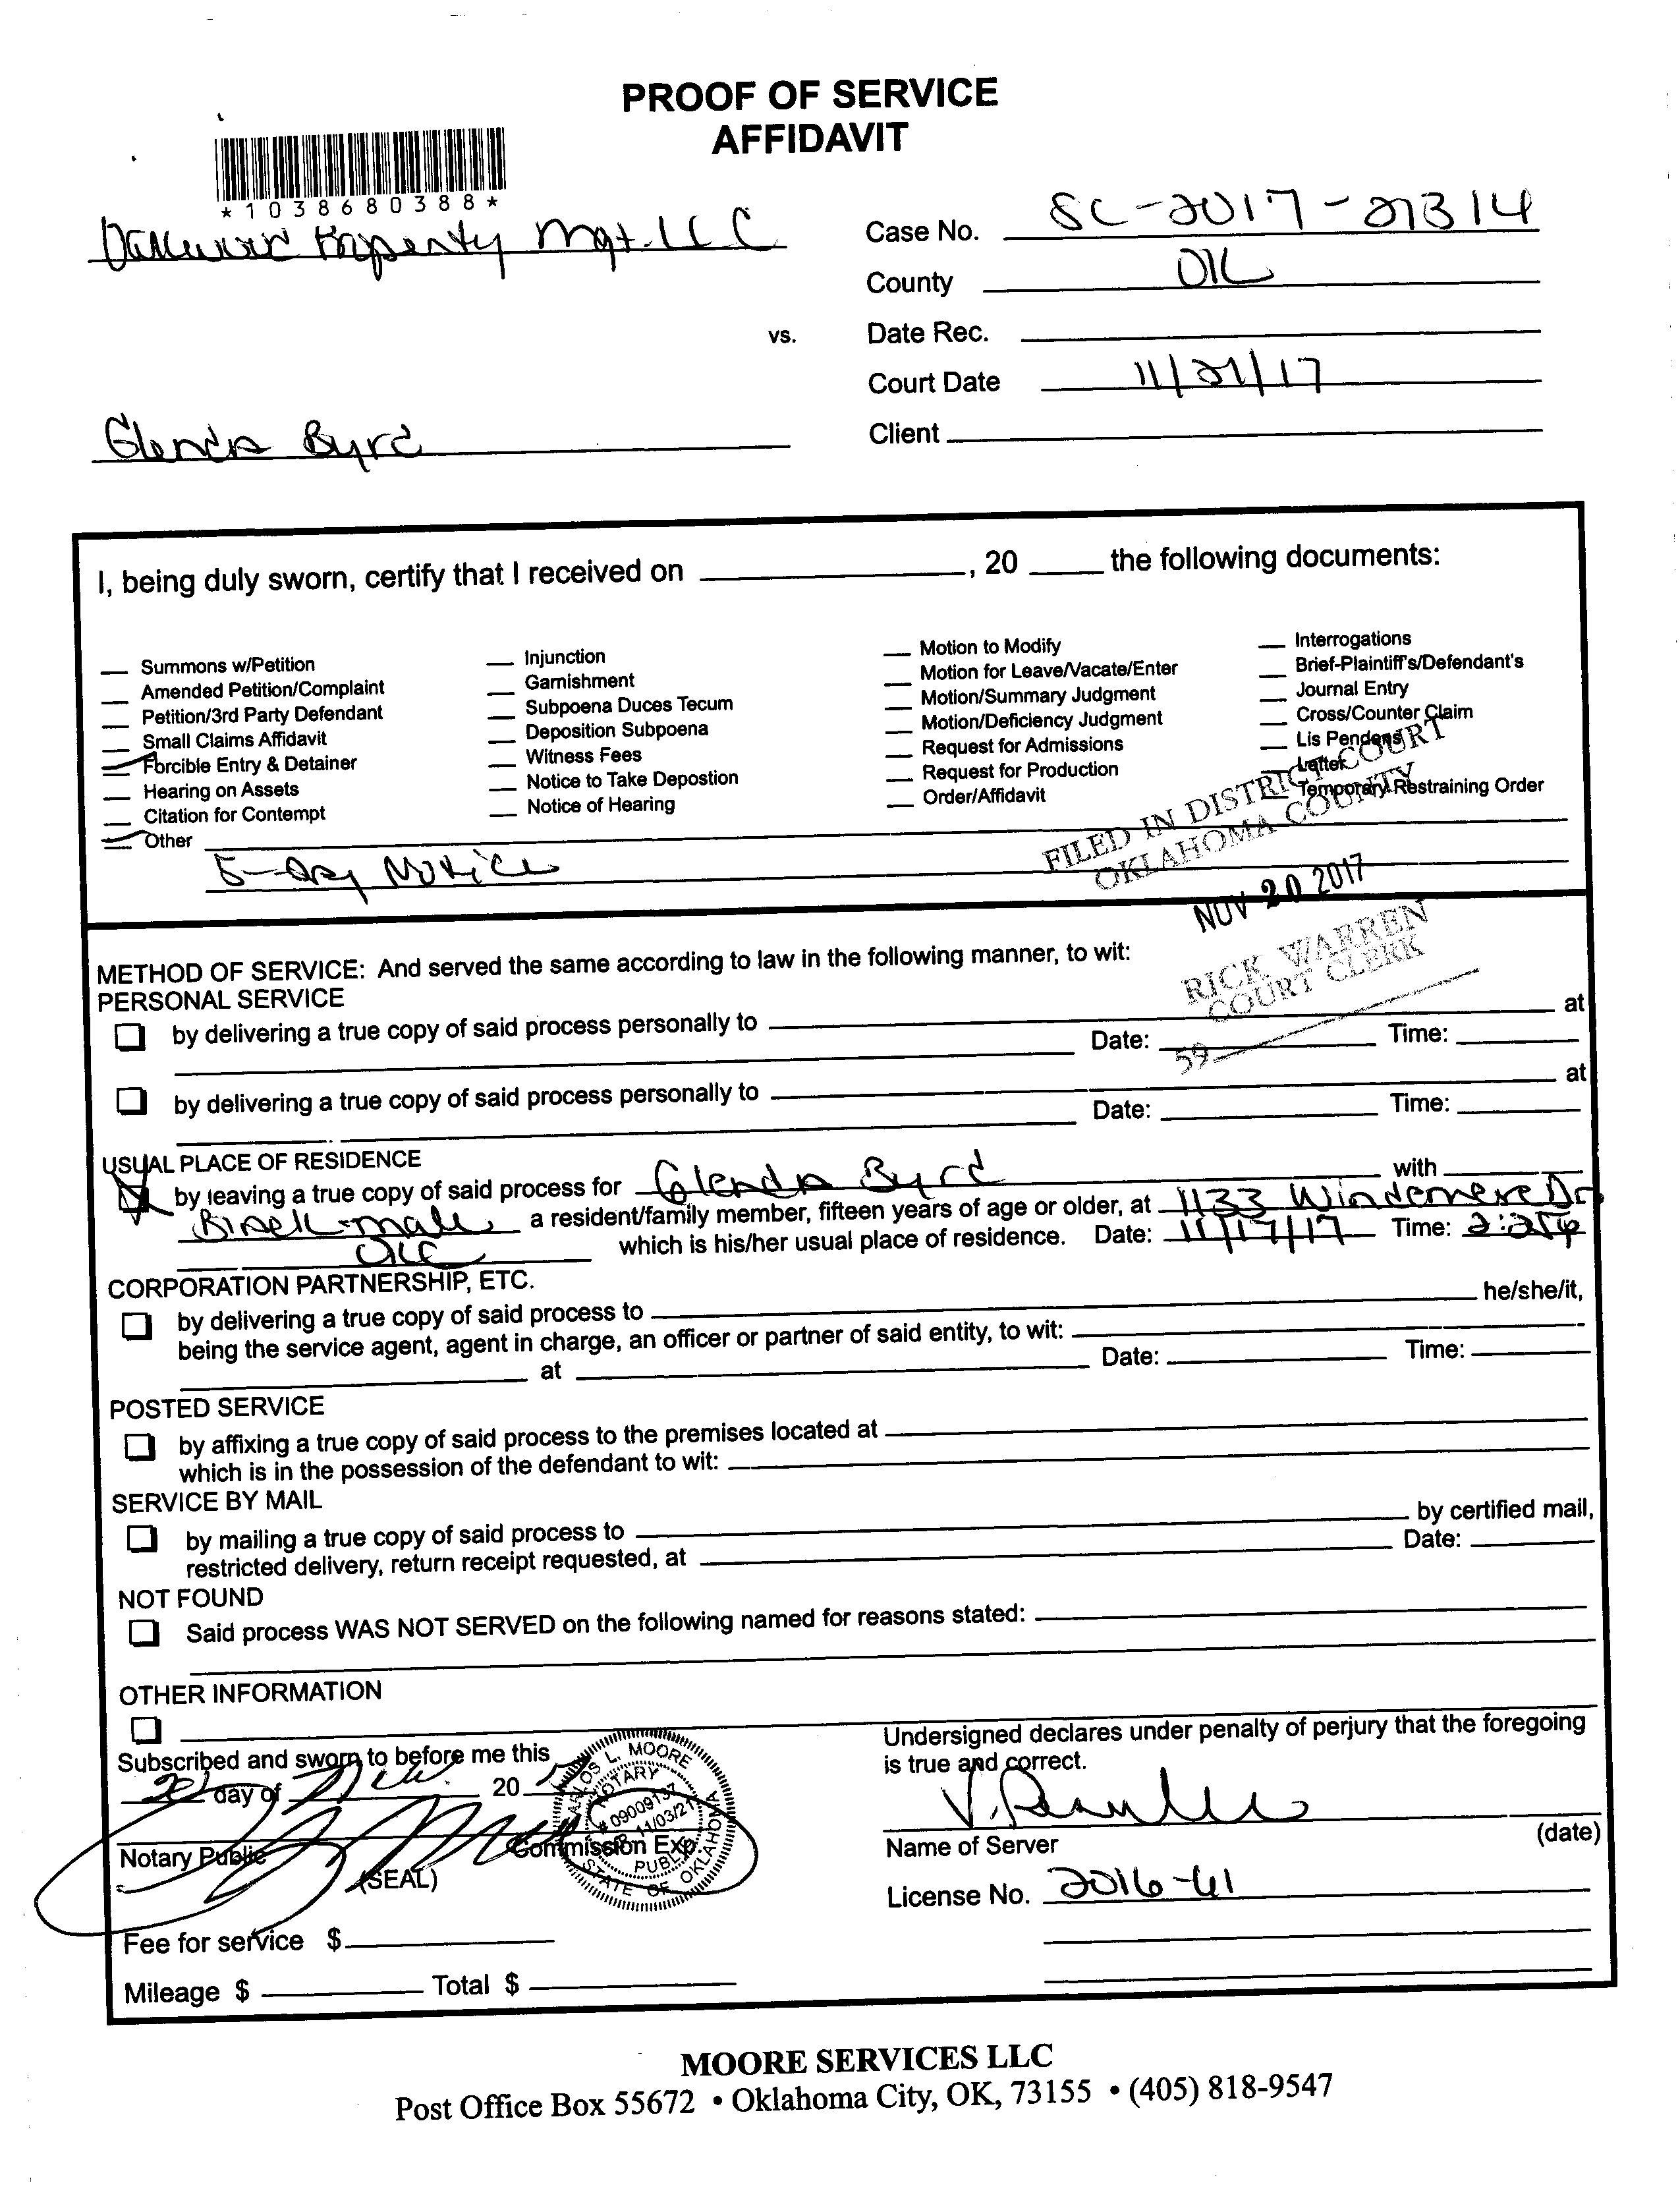 PROOF OF SERVICE
AFFIDAVIT
*1038680388*
Property Mgt. LLC
Case No. SC-2017-21314
County OK
vs.
Date Rec.
Court Date 11/21/17
Glenda Byrd
Client
I, being duly sworn, certify that I received on ____, 20 ____ the following documents:
Summons w/Petition
Amended Petition/Complaint
Petition/3rd Party Defendant
Small Claims Affidavit
Forcible Entry & Detainer
Hearing on Assets
Citation for Contempt
Other
5-Day Notice
Injunction
Garnishment
Subpoena Duces Tecum
Deposition Subpoena
Witness Fees
Notice to Take Depostion
Notice of Hearing
Motion to Modify
Motion for Leave/Vacate/Enter
Motion/Summary Judgment
Motion/Deficiency Judgment
Request for Admissions
Request for Production
Order/Affidavit
Interrogations
Brief-Plaintiff's/Defendant's
Journal Entry
Cross/Counter Claim
Lis Pendens
Letter
Temporary Restraining Order
FILED IN DISTRICT COURT
OKLAHOMA COUNTY
NOV 20 2017
RICK WARREN
COURT CLERK
59
METHOD OF SERVICE: And served the same according to law in the following manner, to wit:
PERSONAL SERVICE
by delivering a true copy of said process personally to ____ at
Date: ____ Time: ____
by delivering a true copy of said process personally to ____ at
Date: ____ Time: ____
USUAL PLACE OF RESIDENCE
by leaving a true copy of said process for Glenda Byrd with
Black-male a resident/family member, fifteen years of age or older, at 1133 Windemere Dr
OKC which is his/her usual place of residence. Date: 11/17/17 Time:
CORPORATION PARTNERSHIP, ETC.
by delivering a true copy of said process to ____ he/she/it,
being the service agent, agent in charge, an officer or partner of said entity, to wit:
at ____ Date: ____ Time: ____
POSTED SERVICE
by affixing a true copy of said process to the premises located at
which is in the possession of the defendant to wit:
SERVICE BY MAIL
by mailing a true copy of said process to ____ by certified mail,
restricted delivery, return receipt requested, at ____ Date: ____
NOT FOUND
Said process WAS NOT SERVED on the following named for reasons stated:
OTHER INFORMATION
Subscribed and sworn to before me this
20 day of Nov. 20
Notary Public
(SEAL)
Commission Exp.
CARLOS L. MOORE
NOTARY
# 09009137
EXP. 11/03/21
PUBLIC
STATE OF OKLAHOMA
Fee for service $
Mileage $ ____ Total $ ____
Undersigned declares under penalty of perjury that the foregoing
is true and correct.
Name of Server (date)
License No. 2016-61
MOORE SERVICES LLC
Post Office Box 55672 • Oklahoma City, OK, 73155 • (405) 818-9547